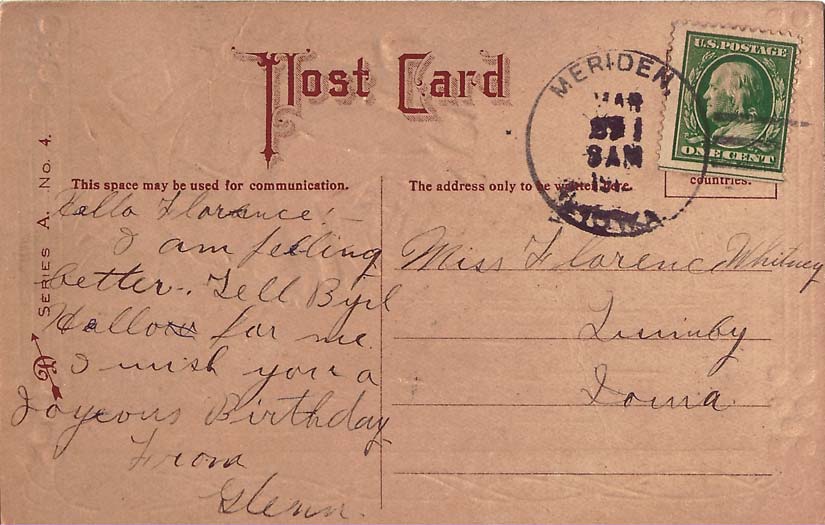 Post Card
U.S. POSTAGE
ONE CENT
MERIDEN,
MAR
8 AM
191
IOWA
This space may be used for communication.
The address only to be written here.
countries.
SERIES A. No. 4.
Hello Florence! –
I am feeling
better. Tell
Hallow for me.
I wish you a
Joyeous Birthday
From
Glenn.
Miss Florence Whitney
Iowa.